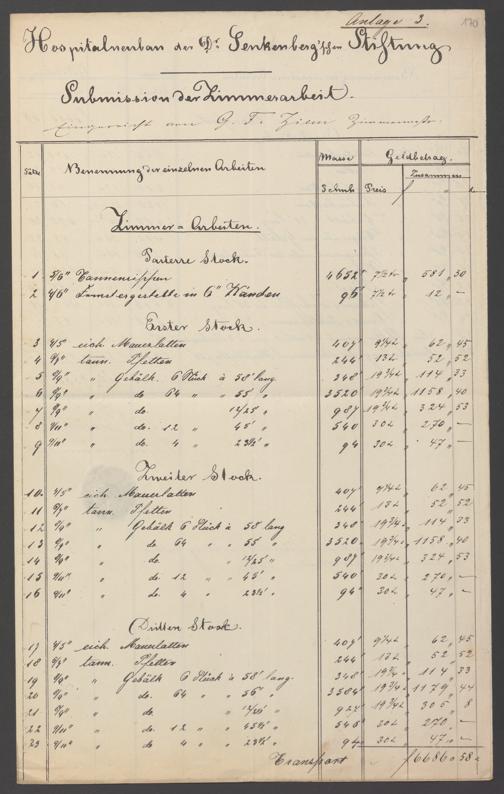 Anlage 3.
170
Hospitalneubau der Dr. Senkenberg'schen Stiftung
Submission der Zimmerarbeit.
Eingereicht von G. F. Ziem Zimmermstr.
Benennung der einzelnen Arbeiten Masse Geldbetrag.
Schuh Preis Zusammen
Zimmer-Arbeiten.
Parterre Stock.
1 5/6" Tannenrippen 4652' 7½ 581 30
2 4/6" in 6" Wänden 96' 7½ 12 –
Erster Stock.
3 4/5" eich. Mauerlatten 407' 9¼ 62 45
4 tann. Pfetten 244' 13 52 52
5 " Gebälk 6 Stück à 58' lang 348' 19¾ 114 33
6 " do 64 " " 55' " 3520' 19¾ 1158 40
7 " do. 987' 19¾ 324 53
8 " do. 12 " " 45' " 540' 30 270 –
9 " do. 4 " 23½' " 94 30 47 –
Zweiter Stock.
10 4/5" eich. Mauerlatten 407' 9¼ 62 45
11 tann. Pfetten 244' 13 52 52
12 " Gebälk 6 Stück à 58' lang 348' 19¾ 114 33
13 " do 64 " " 55' " 3520 19¾ 1158 40
14 " do. 987' 19¾ 324 53
15 " do 12 " " 45' " 540' 30 270 –
16 " do. 4 " 23½' " 94' 30 47 –
Dritten Stock.
17 4/5" eich. Mauerlatten 407' 9¼ 62 45
18 tann. Pfetten 244' 13 52 52
19 " Gebälk 6 Stück à 58' lang. 348' 19¾ 114 33
20 " do. 64 " " 56' " 3584' 19¾ 1179 44
21 " do. 924' 19¾ 305 8
22 " do. 12 " " 45½' " 30 270 –
23 " do 4 " 23½' " 94 30 47 –
Transport 6686 58